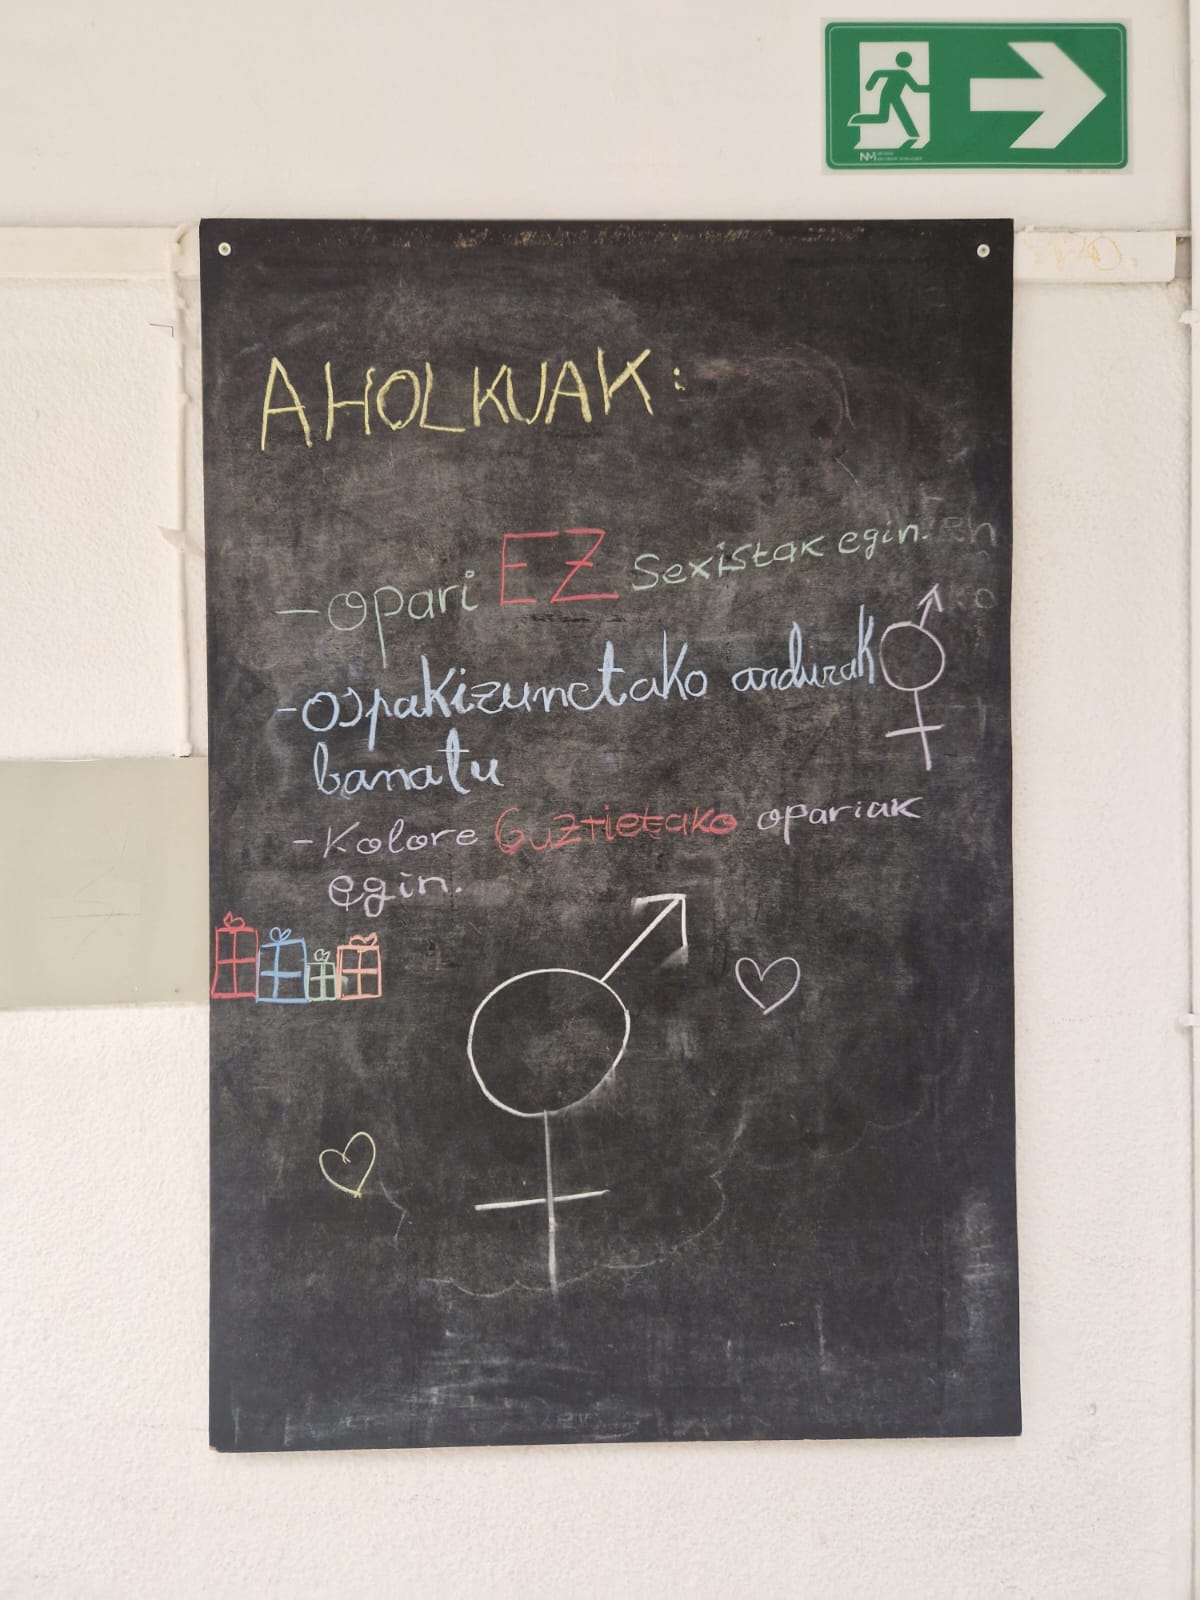 AHOLKUAK:
-Opari EZ Sexistak egin.
-Ospakizunetako ardurak
banatu
-Kolore Guztietako opariak
egin.
NM